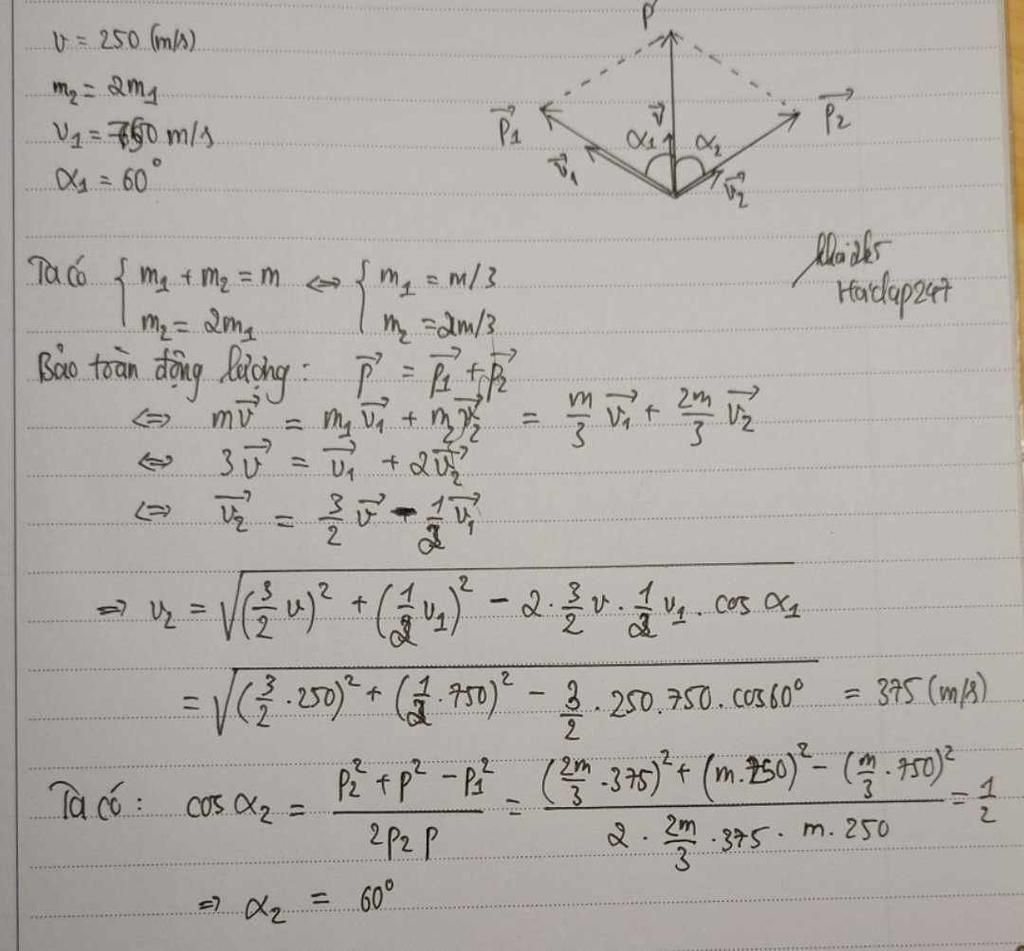 v = 250 (m/s)
m₂ = 2m₁
v₁ = 750 m/s
α₁ = 60°
P
P⃗₁
v⃗
P⃗₂
α₁
α₂
v⃗₁
v⃗₂
Hardap247
Ta có { m₁ + m₂ = m ⇔ { m₁ = m/3
m₂ = 2m₁ m₂ = 2m/3
Bảo toàn động lượng: p⃗ = p⃗₁ + p⃗₂
⇔ mv⃗ = m₁v⃗₁ + m₂v⃗₂ = m/3 v⃗₁ + 2m/3 v⃗₂
⇔ 3v⃗ = v⃗₁ + 2v⃗₂
⇔ v⃗₂ = 3/2 v⃗ - 1/2 v⃗₁
⇒ v₂ = √((3/2 v)² + (1/2 v₁)² - 2 · 3/2 v · 1/2 v₁ · cos α₁)
= √((3/2 · 250)² + (1/2 · 750)² - 3/2 · 250 . 750 . cos60°) = 375 (m/s)
Ta có : cos α₂ = (P₂² + P² - P₁²)/(2P₂P) = ((2m/3 · 375)² + (m.250)² - (m/3 · 750)²)/(2 · 2m/3 · 375 · m . 250) = 1/2
⇒ α₂ = 60°